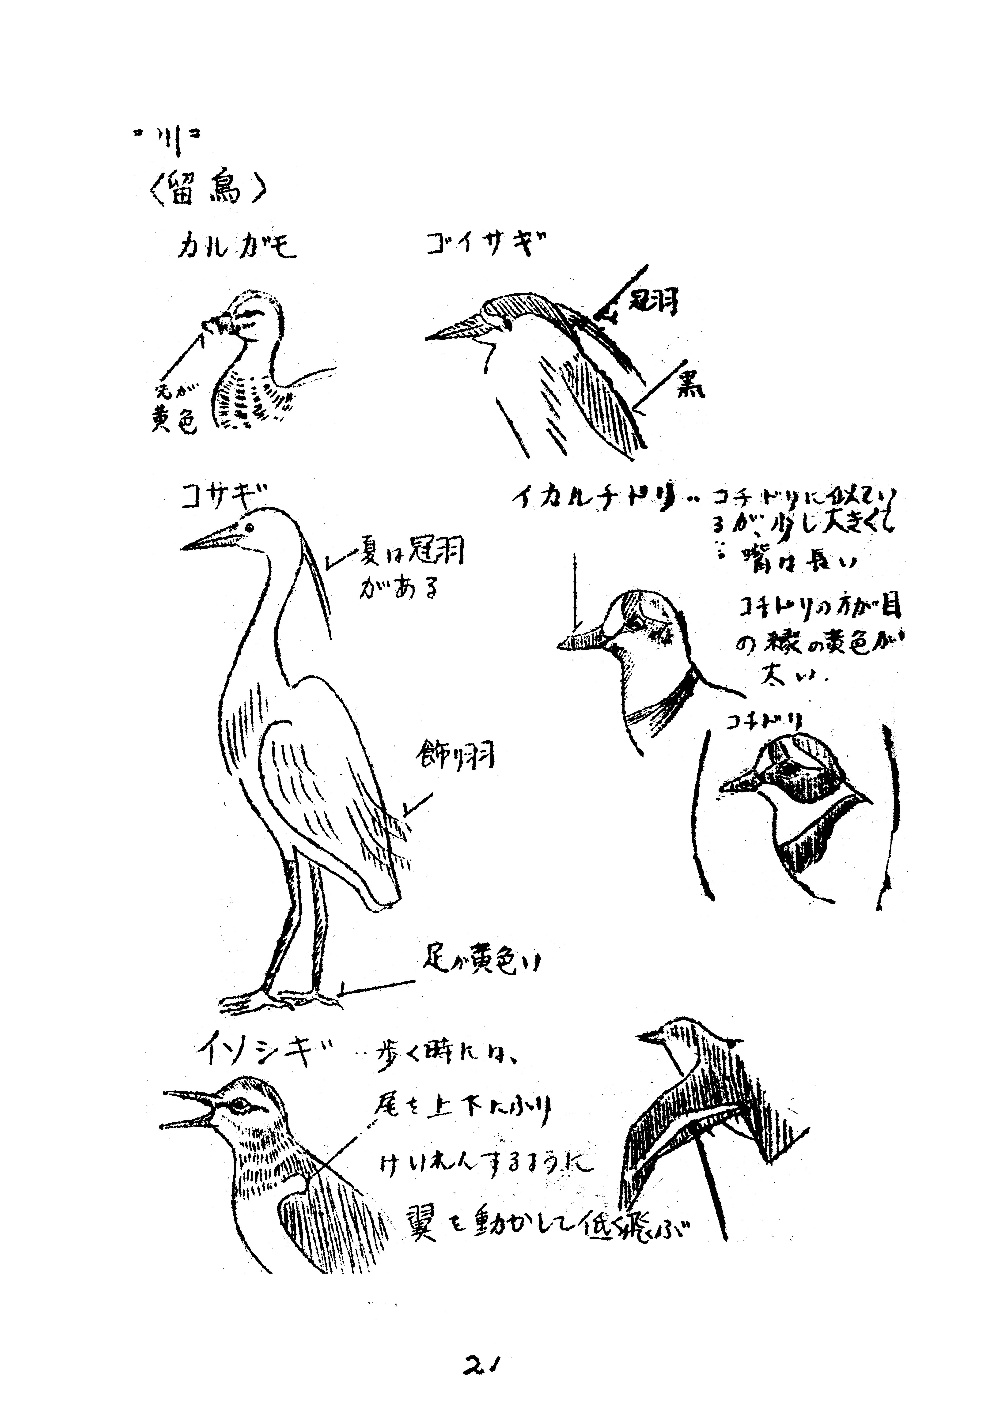 "川"
〈留鳥〉
カルガモ
先が
黄色
ゴイサギ
冠羽
黒
コサギ
夏は冠羽
がある
飾り羽
足が黄色い
イカルチドリ‥コチドリに似てい
るが、少し大きくて
嘴は長い
コチドリの方が目
の縁の黄色が
太い.
コチドリ
イソシギ‥歩く時には、
尾を上下にふり
けいれんするように
翼を動かして低く飛ぶ
21